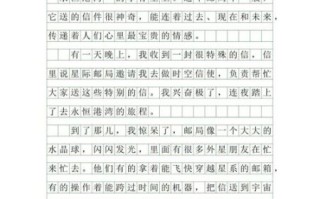 它送的信件很神奇，能连着过去、现在和未来，
传递着人们心里最宝贵的情感。
有一天晚上，我收到一封很特殊的信，信
里说星际邮局邀请我去做时空信使，负责帮忙
大家送这些特别的信。我兴奋极了，连夜踏上
了去永恒港湾的旅程。
到了那儿，我惊呆了，邮局像一个大大的
水晶球，闪闪发光，里面有很多外星朋友在忙
来忙去。他们有的拿着能飞快穿越星系的邮箱，
有的操作着能跨过时间的机器，把信送到宇宙